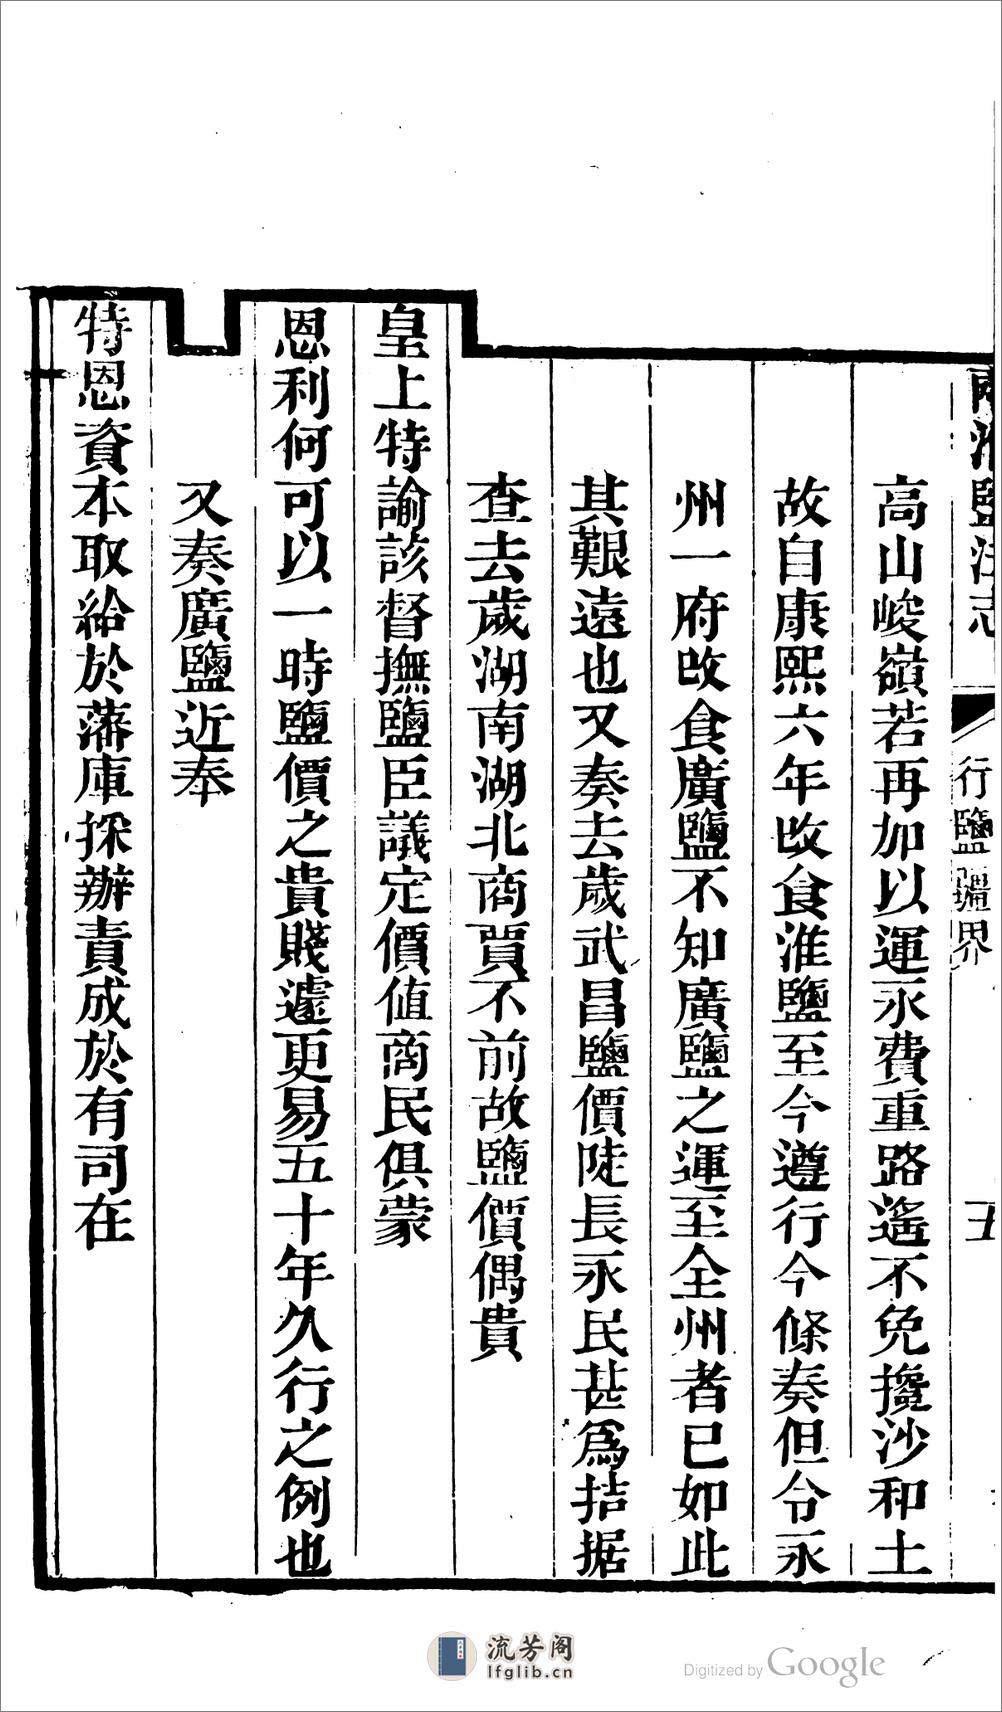 兩淮鹽法志
行鹽疆界
五
高山峻嶺若再加以運永費重路遙不免攙沙和土
故自康熙六年改食淮鹽至今遵行今條奏但令永
州一府改食廣鹽不知廣鹽之運至全州者已如此
其艱遠也又奏去歲武昌鹽價陡長永民甚爲拮据
查去歲湖南湖北商賈不前故鹽價偶貴
皇上特諭該督撫鹽臣議定價值商民俱蒙
恩利何可以一時鹽價之貴賤遽更易五十年久行之例也
又奏廣鹽近奉
特恩資本取給於藩庫採辦責成於有司在
流芳阁
lfglib.cn
Digitized by Google